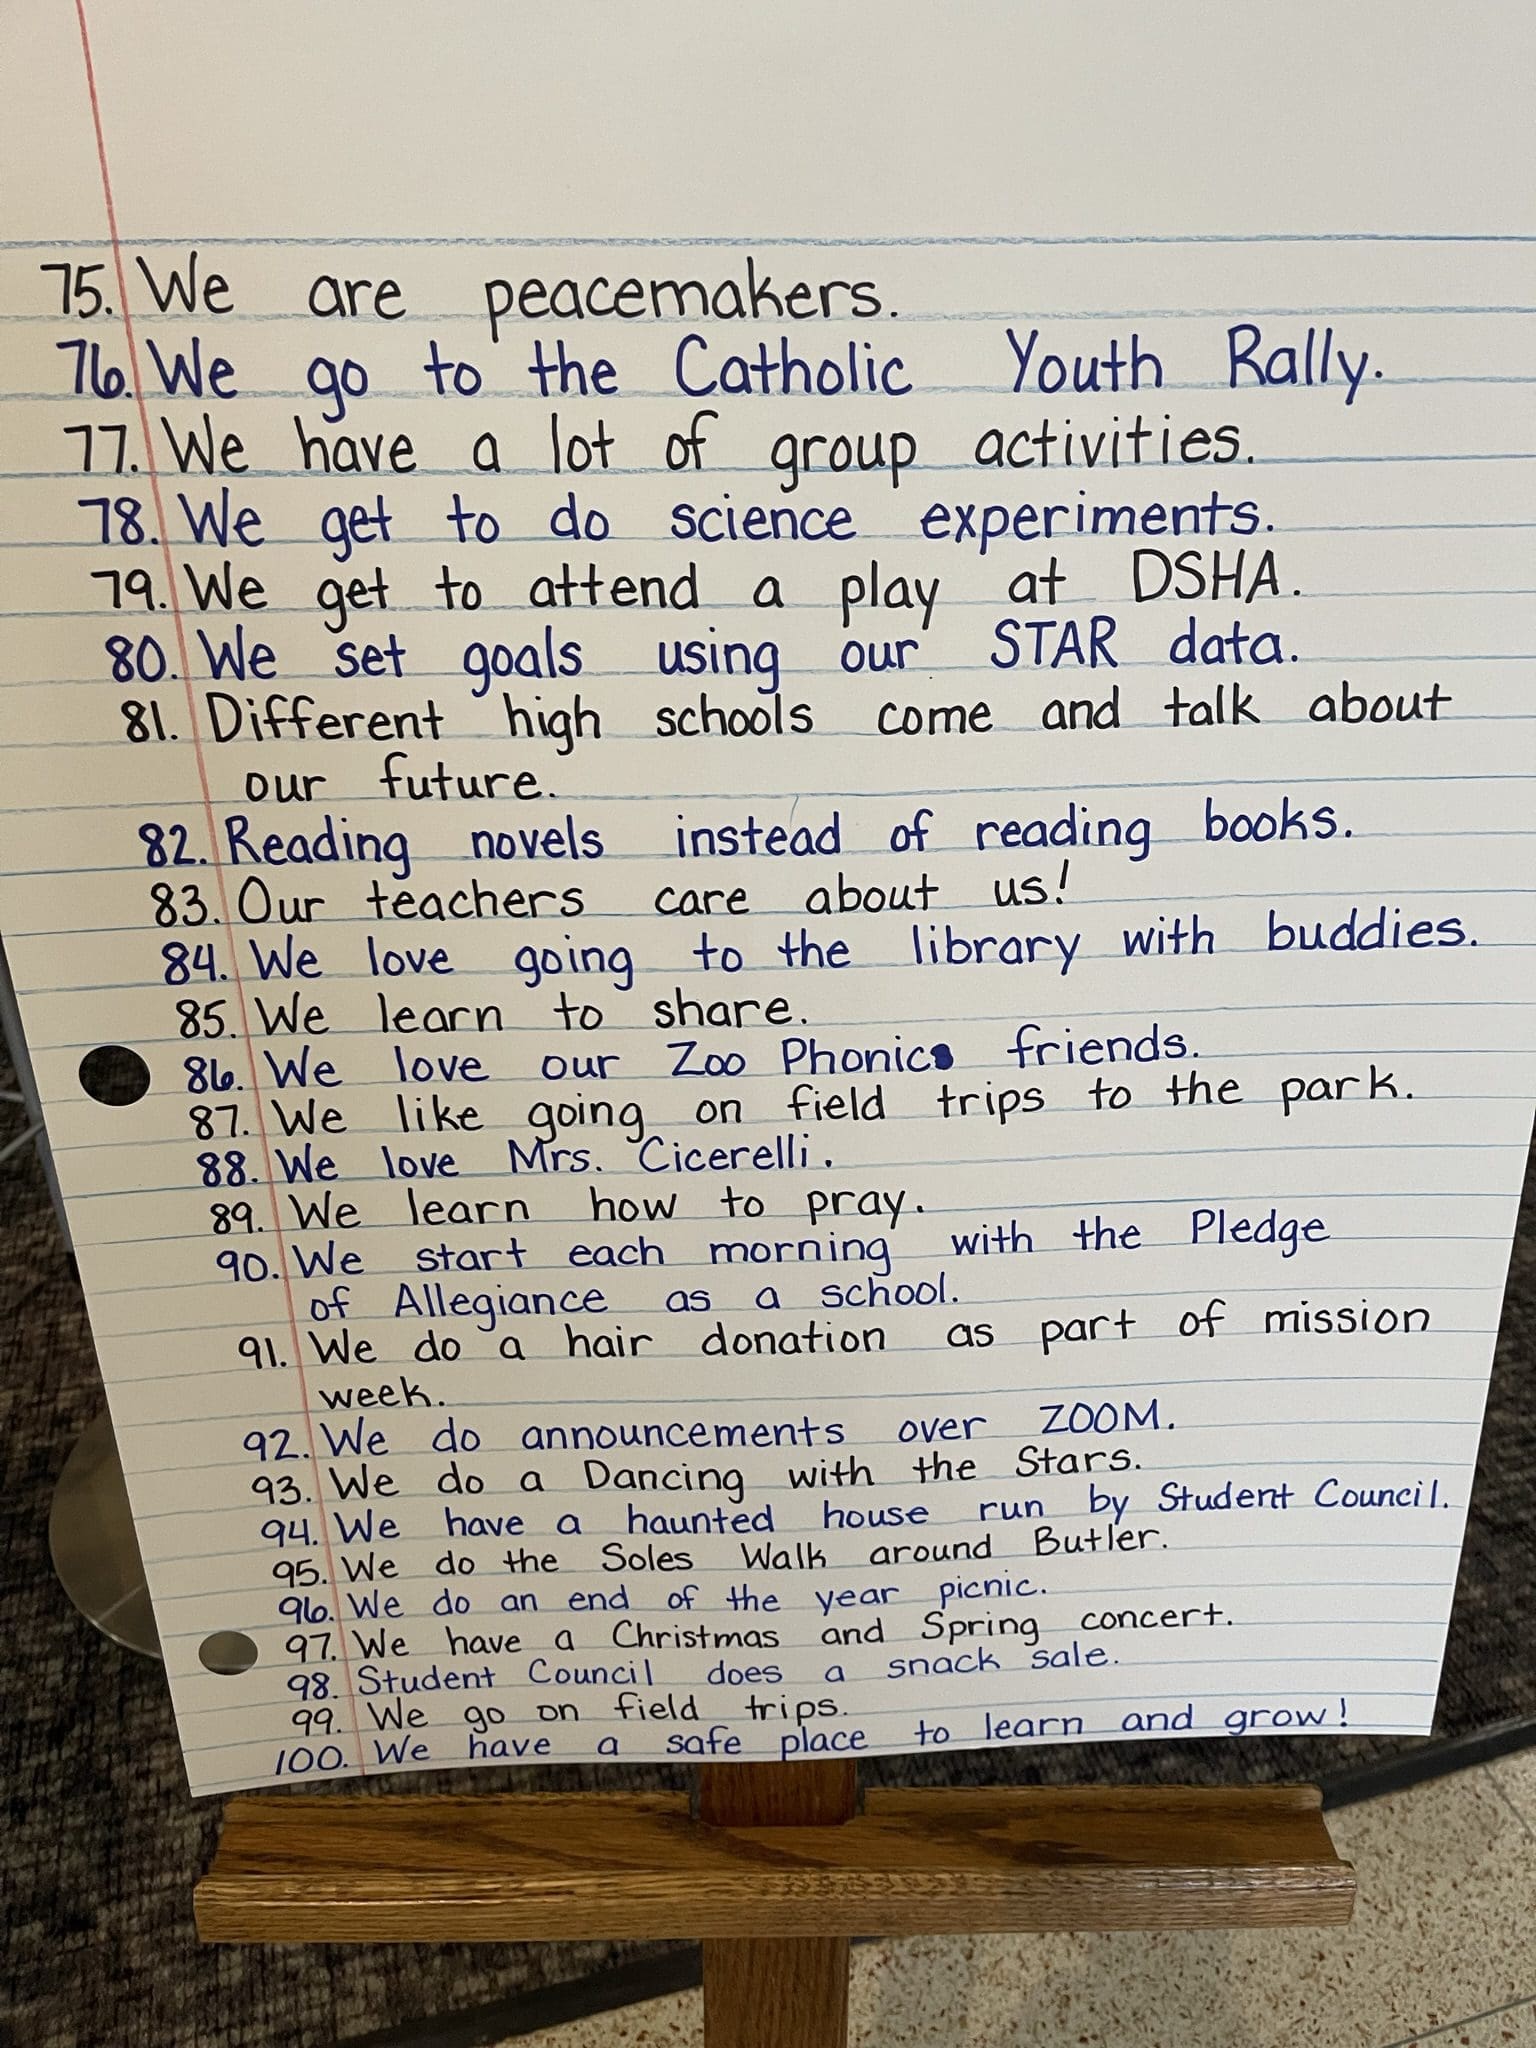 75. We are peacemakers.
76. We go to the Catholic Youth Rally.
77. We have a lot of group activities.
78. We get to do science experiments.
79. We get to attend a play at DSHA.
80. We set goals using our STAR data.
81. Different high schools come and talk about
our future.
82. Reading novels instead of reading books.
83. Our teachers care about us!
84. We love going to the library with buddies.
85. We learn to share.
86. We love our Zoo Phonics friends.
87. We like going on field trips to the park.
88. We love Mrs. Cicerelli.
89. We learn how to pray.
90. We start each morning with the Pledge
of Allegiance as a school.
91. We do a hair donation as part of mission
week.
92. We do announcements over ZOOM.
93. We do a Dancing with the Stars.
94. We have a haunted house run by Student Council.
95. We do the Soles Walk around Butler.
96. We do an end of the year picnic.
97. We have a Christmas and Spring concert.
98. Student Council does a snack sale.
99. We go on field trips.
100. We have a safe place to learn and grow!